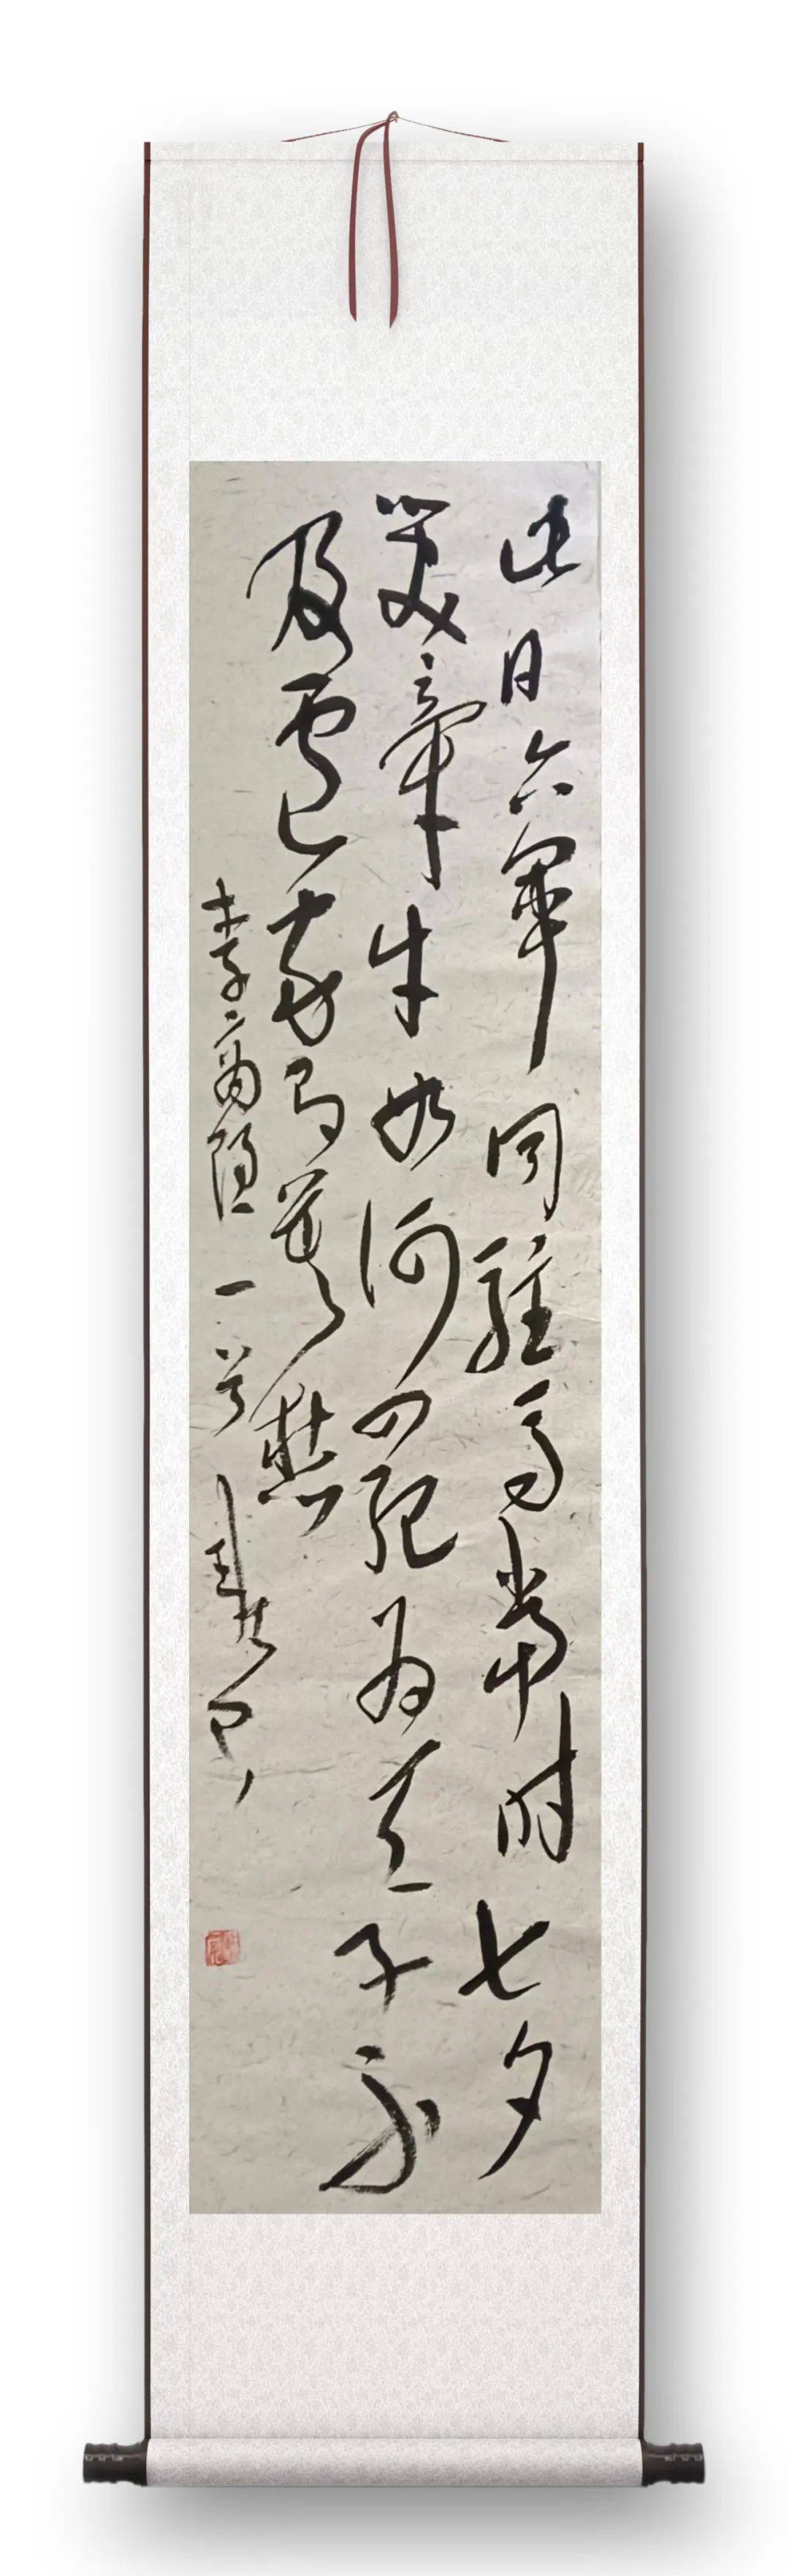 此日六軍同駐馬當時七夕
笑牽牛如何四紀為天子不
及盧家有莫愁
李商隱一首